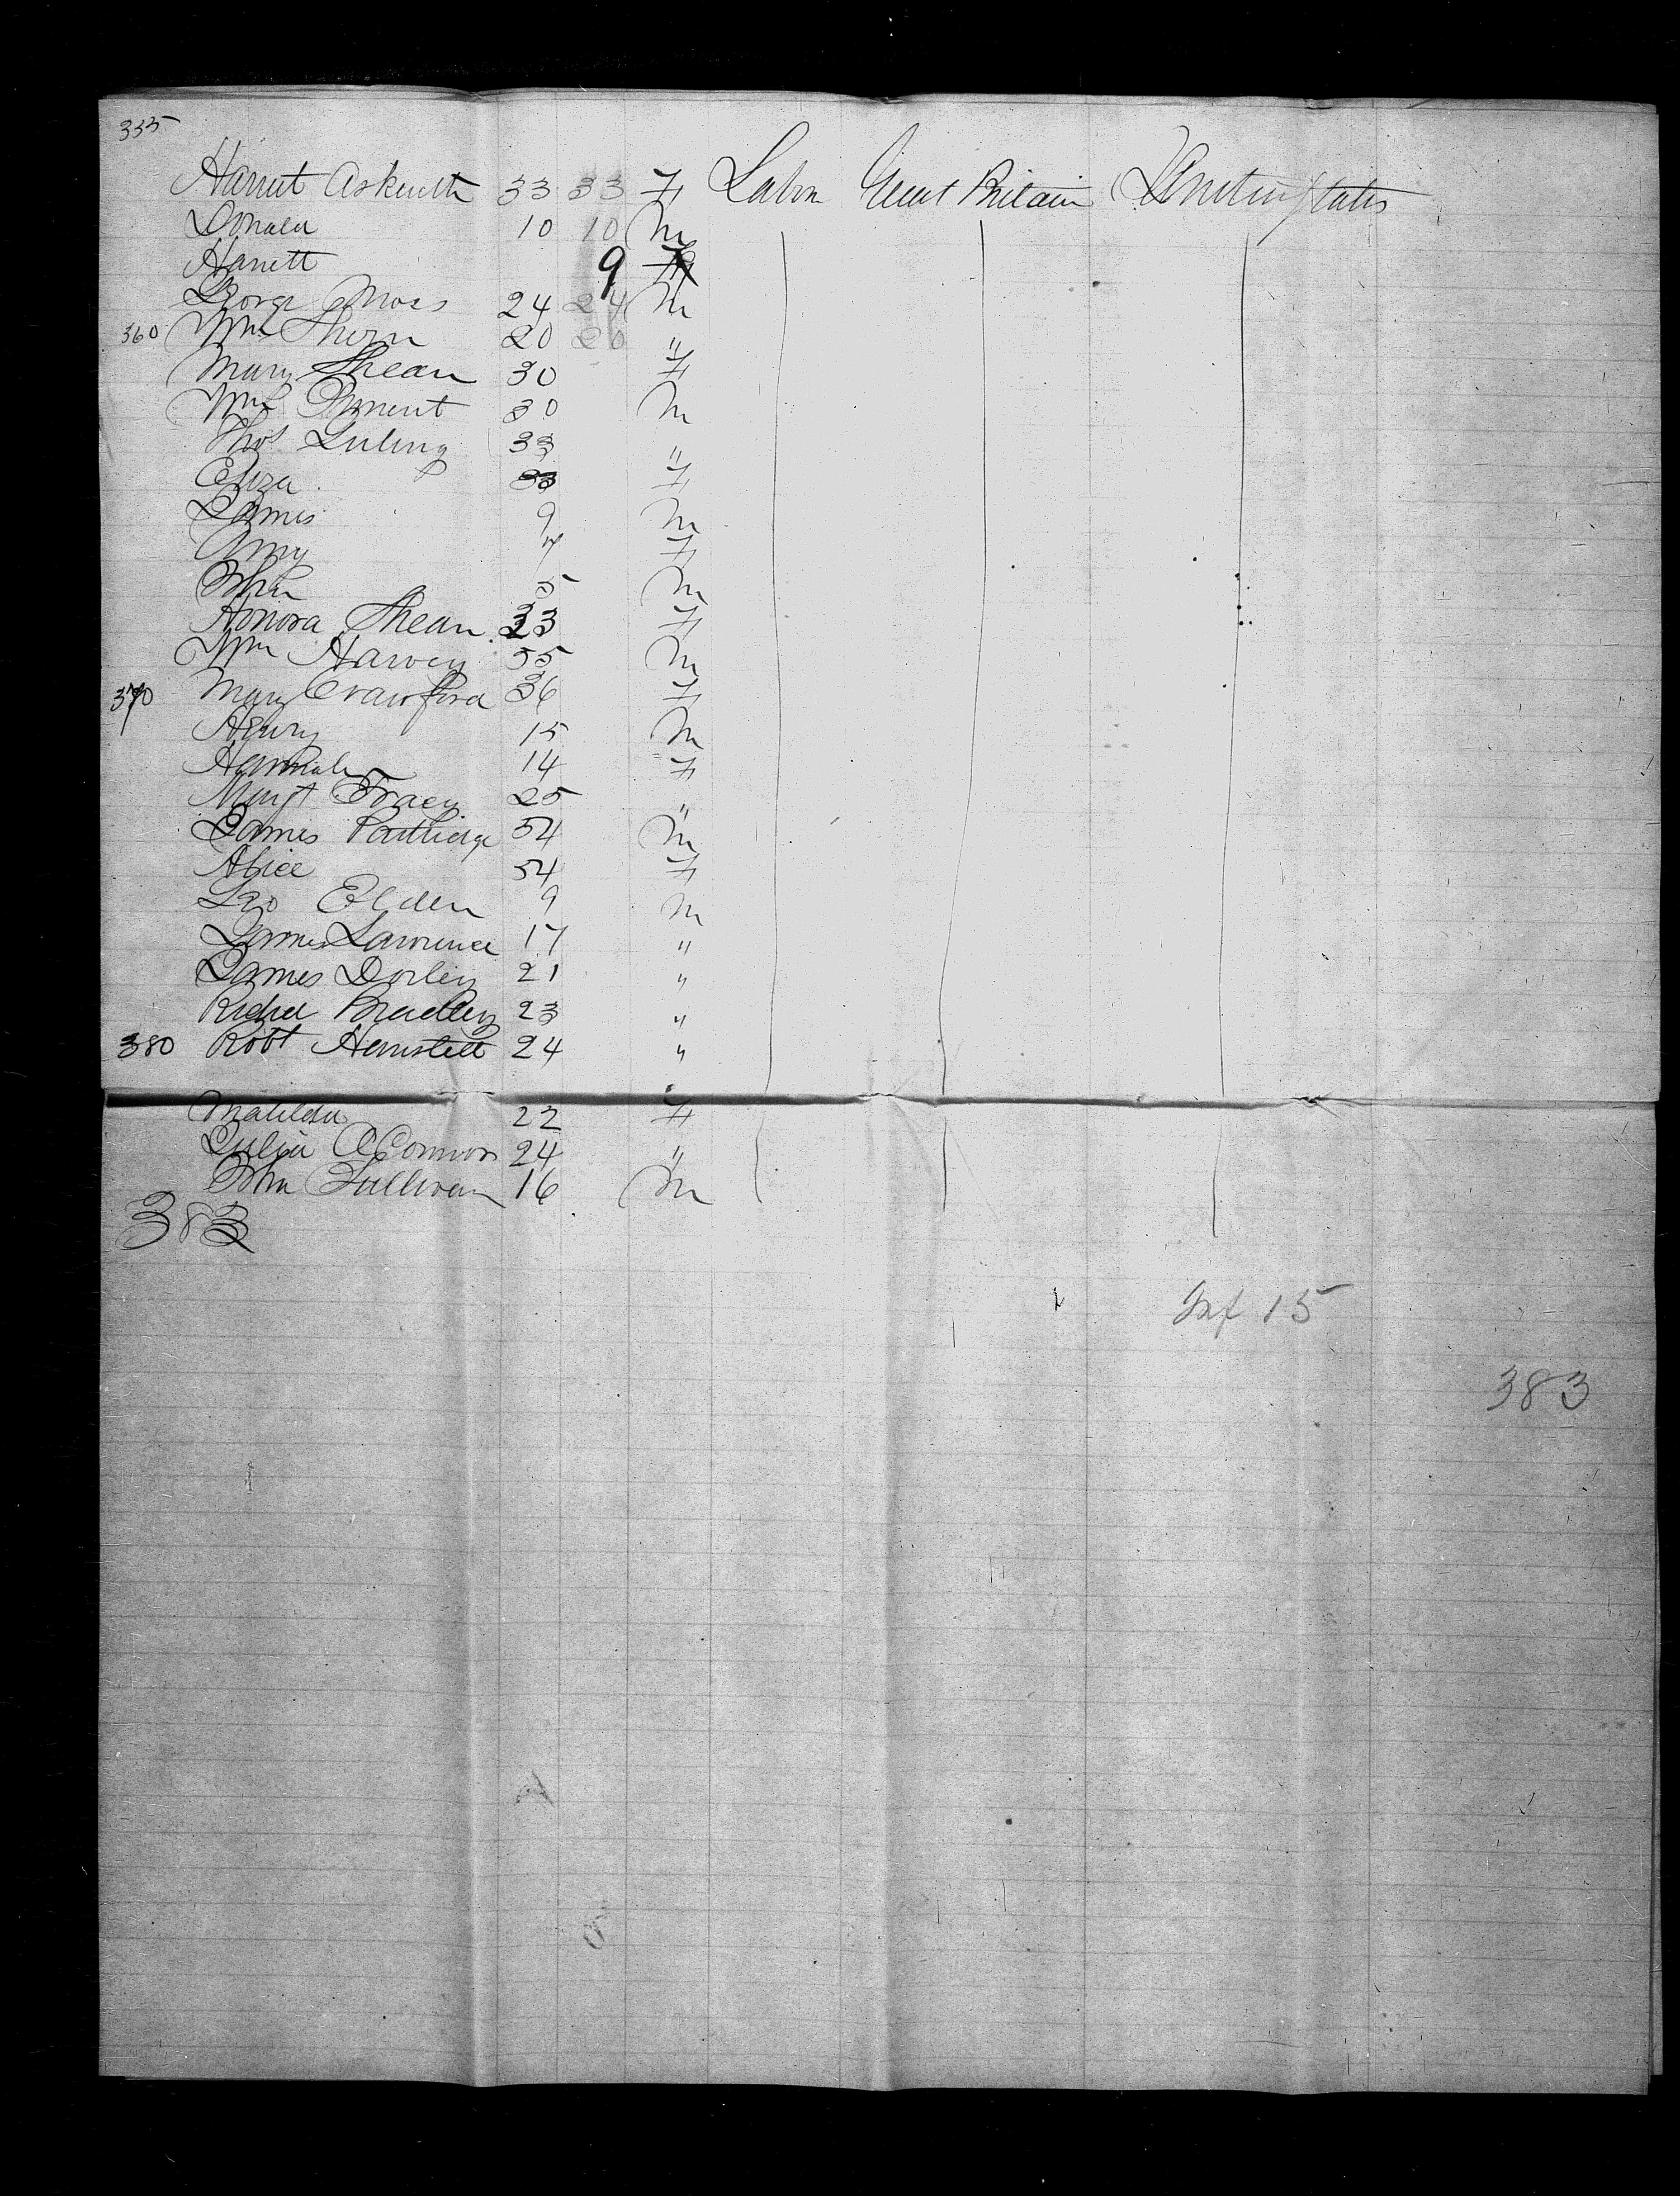 335
Harriet Askwith 33 33 F Labor Great Britain United States
Donald 10 10 M
Harriett 9 F
George Moss 24 24 M
360 Wm Thorn 20 20 "
Mary Shean 30 F
Wm 30 M
Thos 33 "
Eliza 33 F
James 9 M
Amy 7 F
John 5 M
Honora Shean 33 F
Wm Harvey 55 M
370 Mary Crawford 36 F
Henry 15 M
Hannah 14 F
Margt Tracey 25 "
James Partridge 54 M
Alice 54 F
Geo Elden 9 M
James Lawrence 17 "
James Dorley 21 "
Richd Bradley 23 "
380 Robt 24 "
Matilda 22 F
Julia O'Connor 24 "
John Sullivan 16 M
383
Inf 15
383